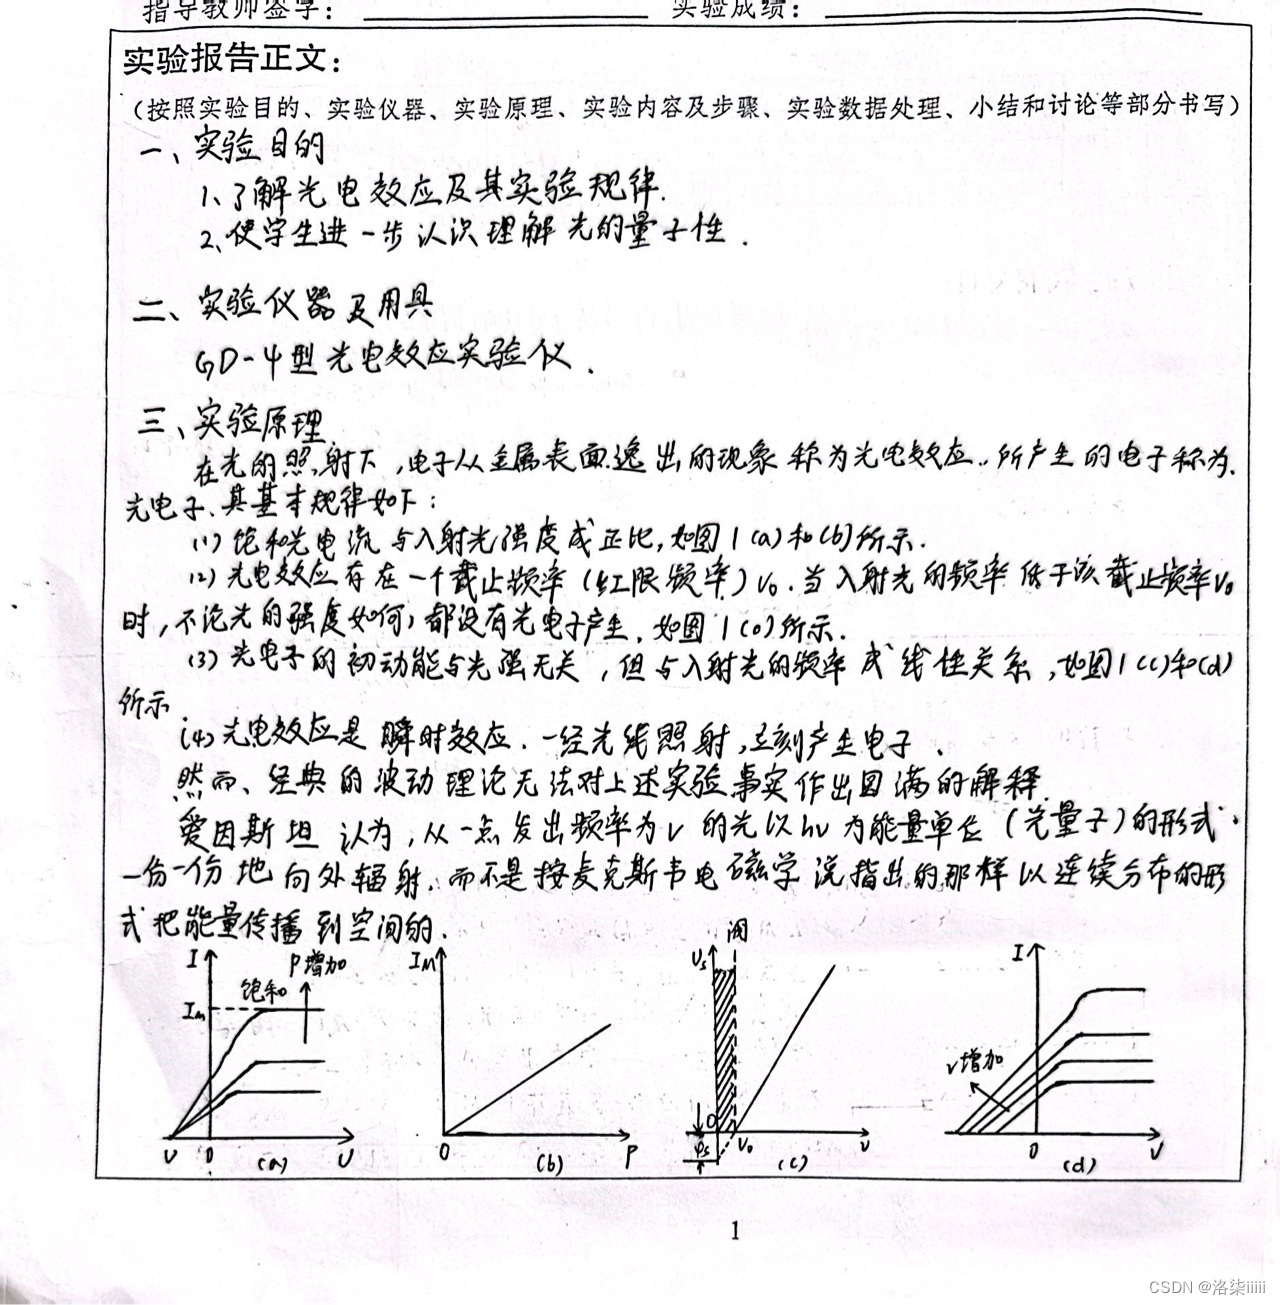 指导教师签字： 实验成绩：
实验报告正文：
（按照实验目的、实验仪器、实验原理、实验内容及步骤、实验数据处理、小结和讨论等部分书写）
一、实验目的
1、了解光电效应及其实验规律.
2、使学生进一步认识理解光的量子性.
二、实验仪器及用具
GD-4型光电效应实验仪.
三、实验原理
在光的照射下,电子从金属表面逸出的现象称为光电效应.所产生的电子称为
光电子、其基本规律如下:
(1)饱和光电流与入射光强度成正比,如图1(a)和(b)所示.
(2)光电效应存在一个截止频率(红限频率)ν₀.当入射光的频率低于该截止频率ν₀
时,不论光的强度如何,都没有光电子产生,如图1(c)所示.
(3)光电子的初动能与光强无关,但与入射光的频率成线性关系,如图1(c)和(d)
所示.
(4)光电效应是瞬时效应.一经光线照射,立刻产生电子.
然而、经典的波动理论无法对上述实验事实作出圆满的解释.
爱因斯坦认为,从一点发出频率为ν的光以hν为能量单位(光量子)的形式
一份一份地向外辐射.而不是按麦克斯韦电磁学说指出的那样以连续分布的形
式把能量传播到空间的.
I P增加 饱和 Im U 0 U (a)
IM 0 P (b)
阈 Us 0 φs ν₀ ν (c)
I ν增加 0 U (d)
1
CSDN @洛柒iiiii